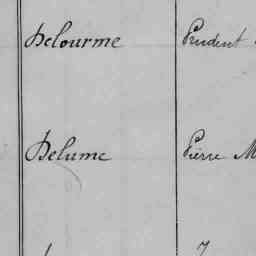 Delourme Prudent
Delume Pierre M